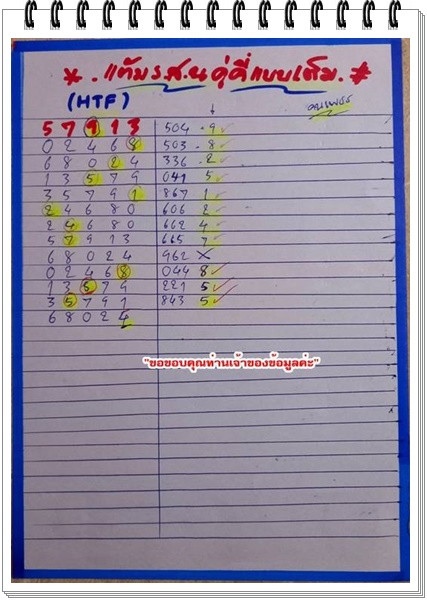 * . แต้มรูด.บน คู่คี่แบบเต็ม. #
(HTF)
5 7 9 1 3 504 - 9 ✓
0 2 4 6 8 503 . 8 ✓
6 8 0 2 4 336 . 2 ✓
1 3 5 7 9 041 5 ✓
3 5 7 9 1 867 1 ✓
2 4 6 8 0 606 2 ✓
2 4 6 8 0 662 4 ✓
5 7 9 1 3 665 7 ✓
6 8 0 2 4 962 ✗
0 2 4 6 8 044 8 ✓
1 3 5 7 9 221 5 ✓
3 5 7 9 1 843 5 ✓
6 8 0 2 4
"ขอขอบคุณท่านเจ้าของข้อมูลค่ะ"